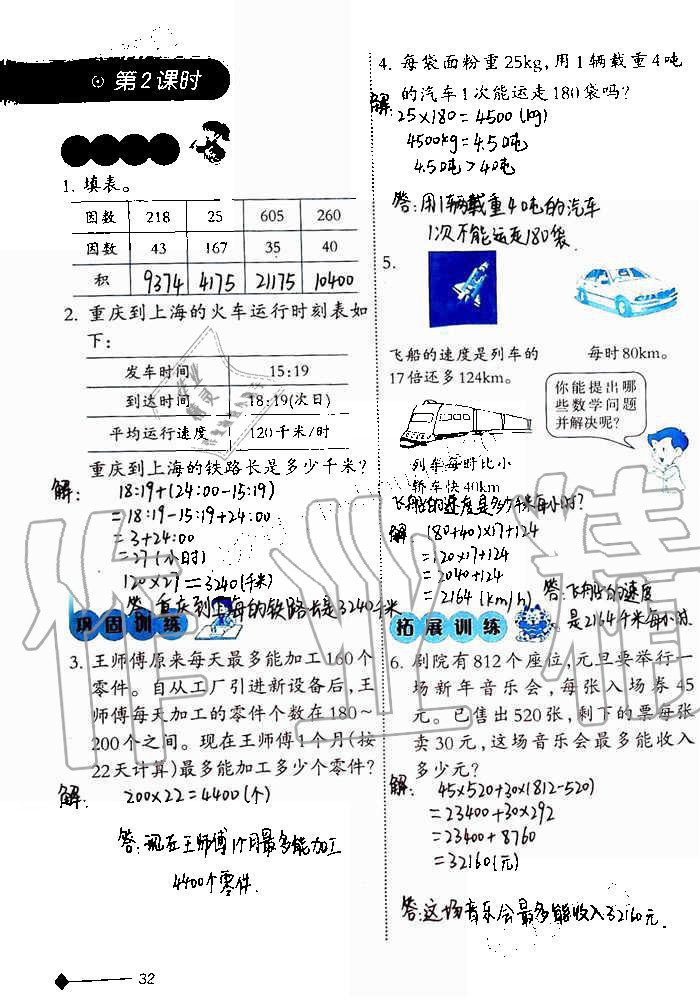 第2课时
1. 填表。
因数 218 25 605 260
因数 43 167 35 40
积 9374 4175 21175 10400
2. 重庆到上海的火车运行时刻表如
下：
发车时间 15:19
到达时间 18:19(次日)
平均运行速度 120千米/时
重庆到上海的铁路长是多少千米？
解： 18:19+(24:00-15:19)
=18:19-15:19+24:00
=3+24:00
=27(小时)
120×27=3240(千米)
答:重庆到上海的铁路长是3240千米
巩固训练
3. 王师傅原来每天最多能加工160个
零件。自从工厂引进新设备后，王
师傅每天加工的零件个数在180~
200个之间。现在王师傅1个月(按
22天计算)最多能加工多少个零件？
解: 200×22=4400(个)
答:现在王师傅1个月最多能加工
4400个零件.
32
4. 每袋面粉重25kg，用1辆载重4吨
的汽车1次能运走180袋吗？
解: 25×180=4500(kg)
4500kg=4.5吨
4.5吨>4吨
答:用1辆载重4吨的汽车
1次不能运走180袋.
5.
飞船的速度是列车的
17倍还多124km。
每时80km。
你能提出哪
些数学问题
并解决呢？
列车每时比小
轿车快40km
飞船的速度是多少千米每小时?
解 (80+40)×17+124
=120×17+124
=2040+124
=2164(km/h)
答:飞船的速度
是2164千米每小时.
拓展训练
6. 剧院有812个座位，元旦要举行一
场新年音乐会，每张入场券45
元。已售出520张，剩下的票每张
卖30元，这场音乐会最多能收入
多少元？
解: 45×520+30×(812-520)
=23400+30×292
=23400+8760
=32160(元)
答:这场音乐会最多能收入32160元.
作业精